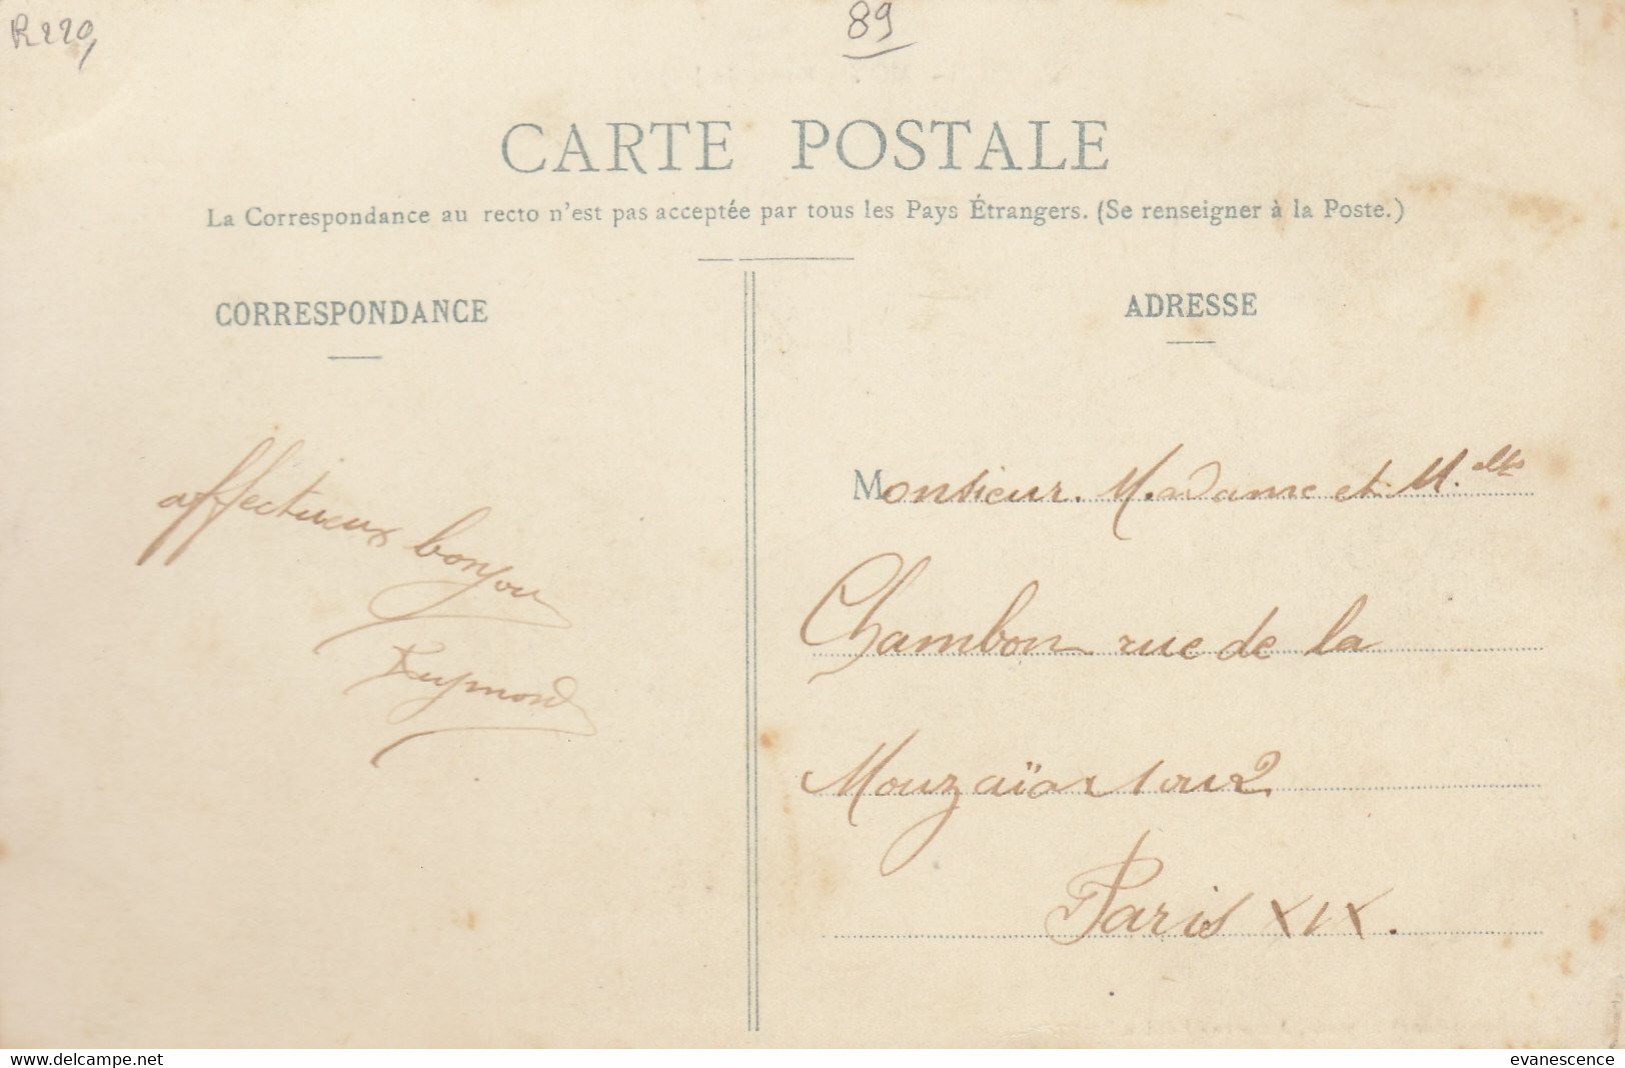 R220
89
CARTE POSTALE
La Correspondance au recto n'est pas acceptée par tous les Pays Étrangers. (Se renseigner à la Poste.)
CORRESPONDANCE
affectueux bonjour
Raymond
ADRESSE
Monsieur. Madame et M.elles
Chambon rue de la
Mouzaïa 1 ou 2
Paris XIX.
www.delcampe.net
evanescence